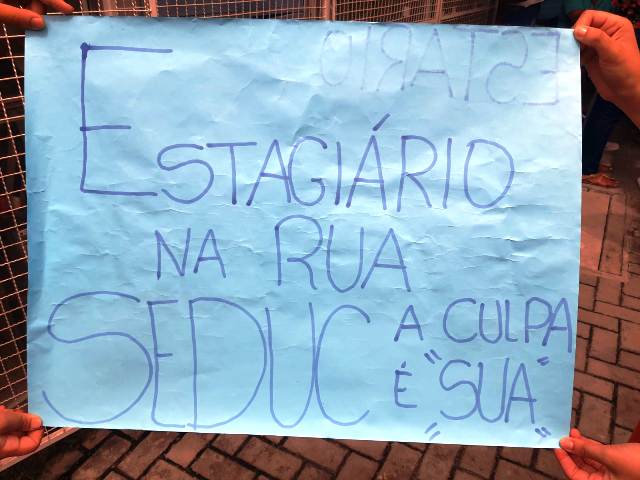 ESTARIO
ESTAGIÁRIO
NA RUA
SEDUC A CULPA
É "SUA"